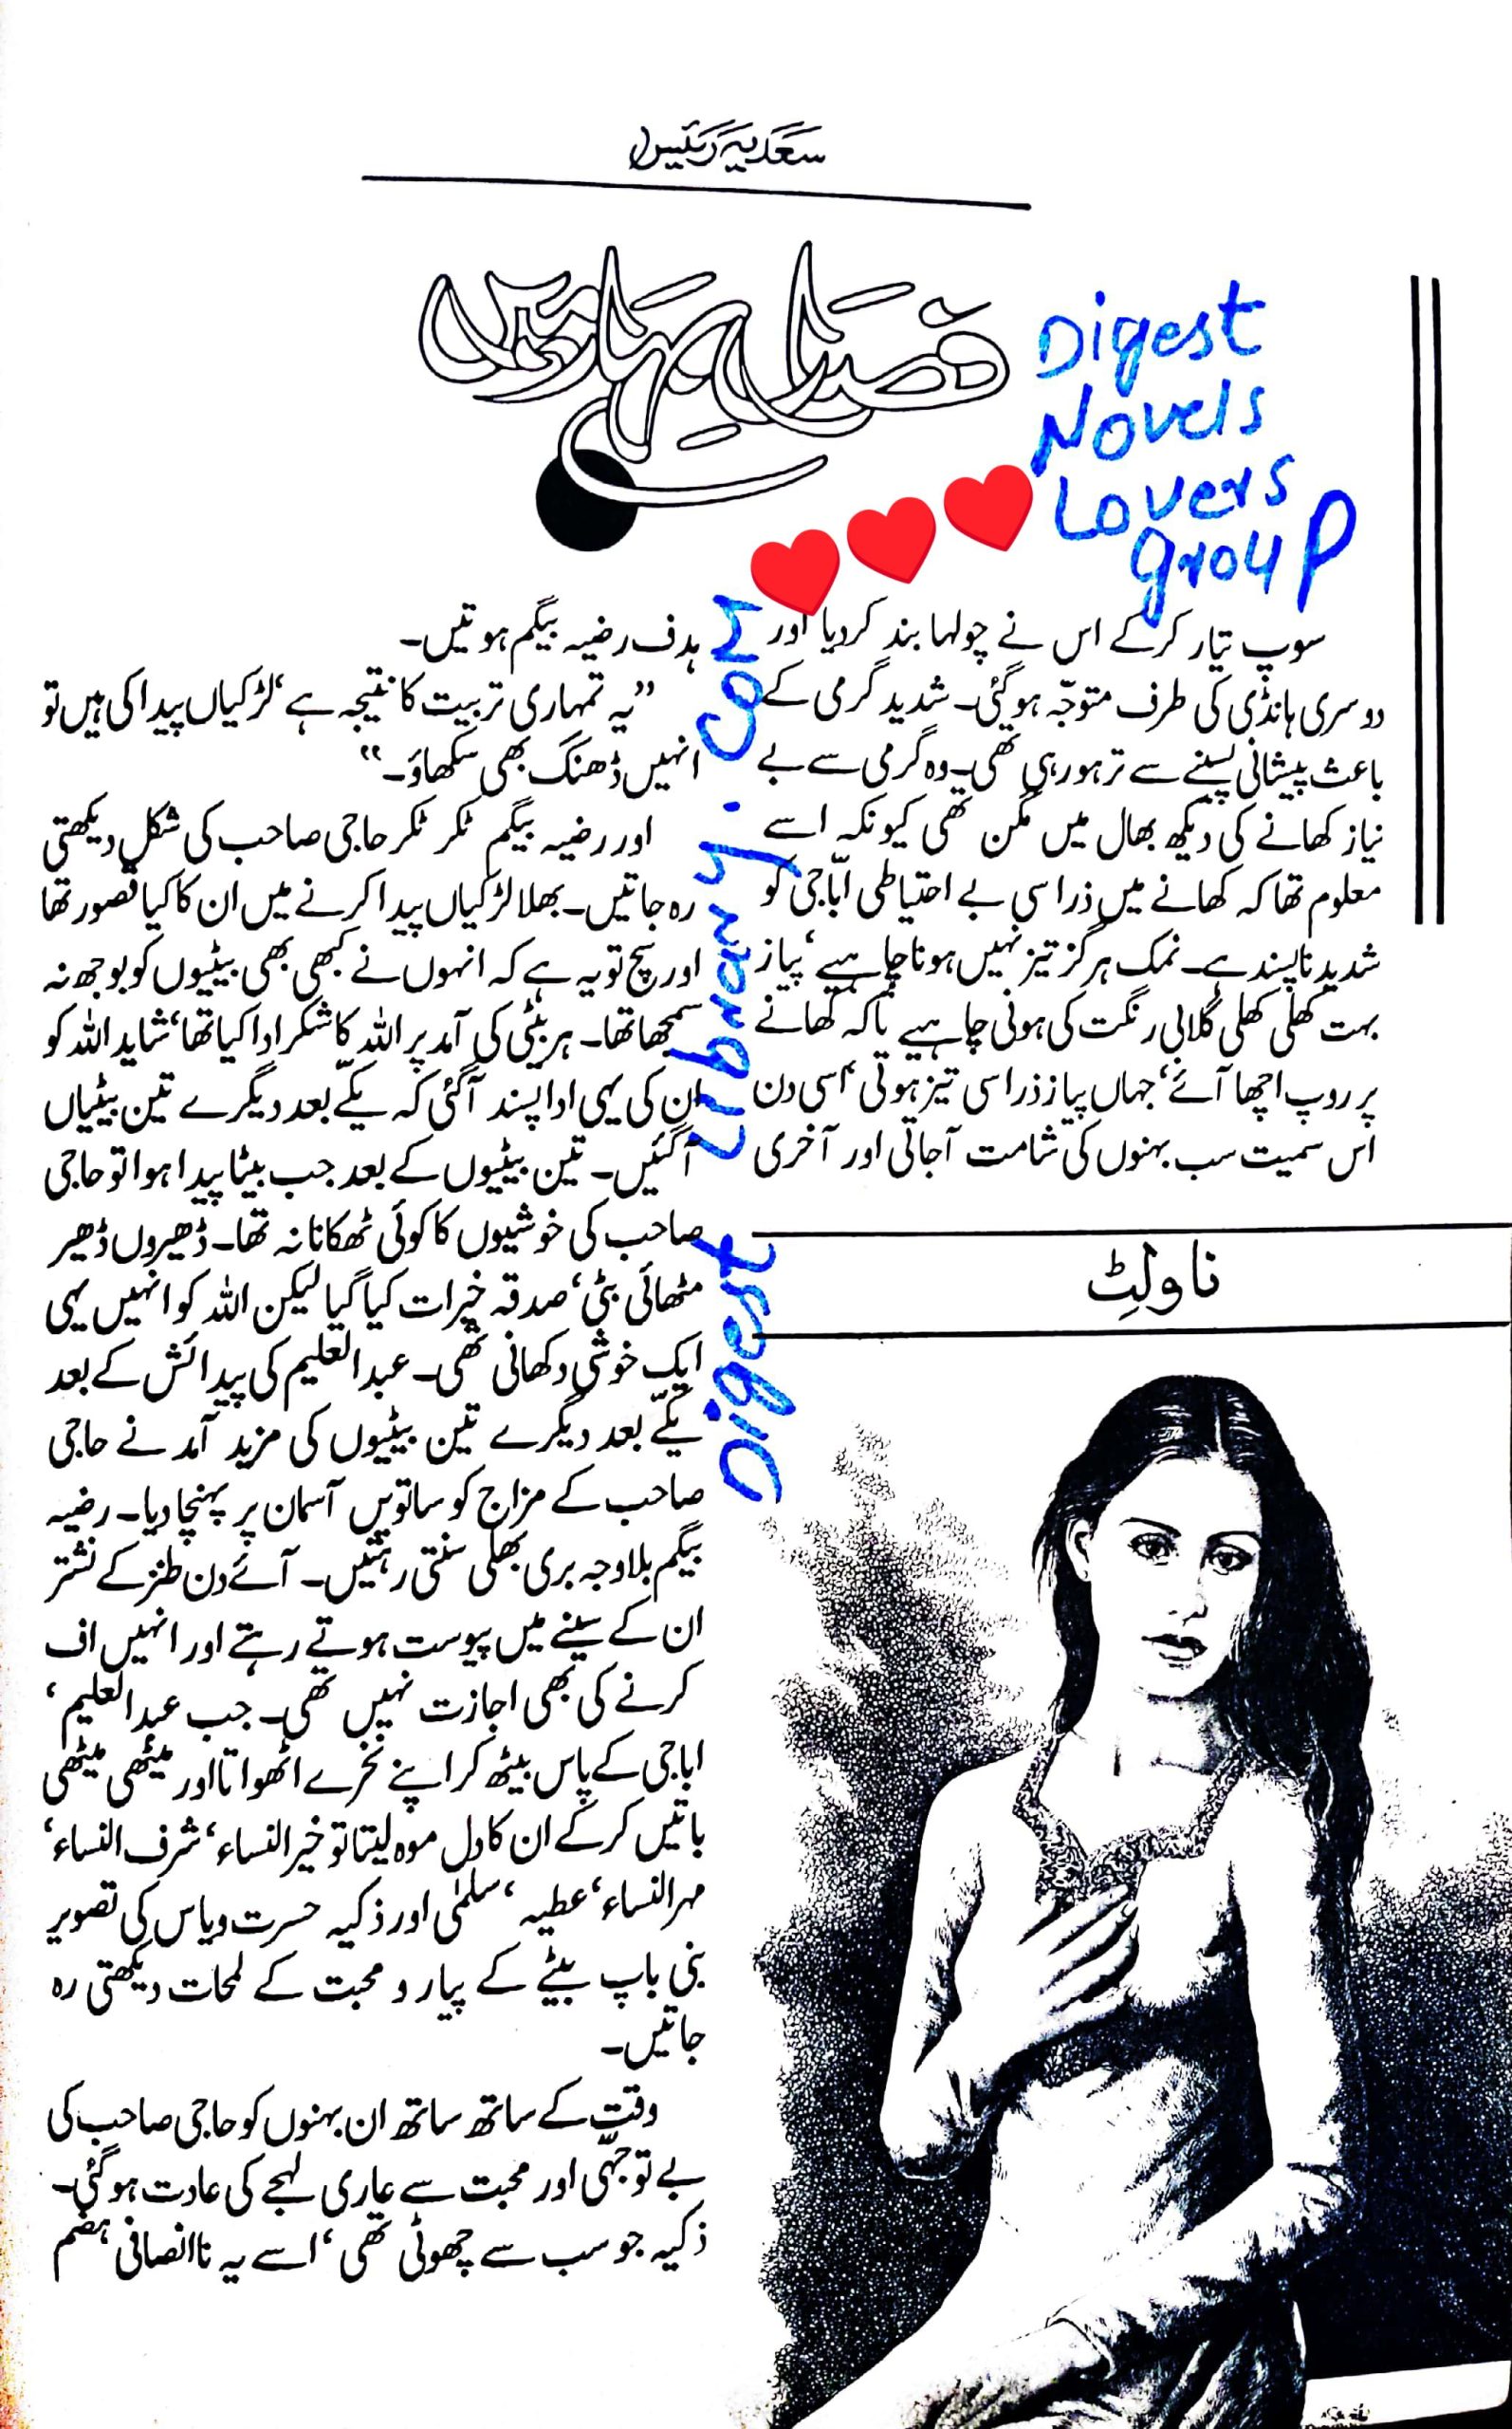 سعدیہ رئیس
فصل بہار میں
Digest
Novels
Lovers
group
سوپ تیار کرکے اس نے چولہا بند کردیا اور
دوسری ہانڈی کی طرف متوجّہ ہوگئی۔ شدید گرمی کے
باعث پیشانی پسینے سے تر ہورہی تھی۔ وہ گرمی سے بے
نیاز کھانے کی دیکھ بھال میں مگن تھی کیونکہ اسے
معلوم تھا کہ کھانے میں ذرا سی بے احتیاطی ابّا جی کو
شدید ناپسند ہے۔ نمک ہرگز تیز نہیں ہونا چاہیے‘ پیاز
بہت کھلی کھلی گلابی رنگت کی ہونی چاہیے تاکہ کھانے
پر روپ اچھا آئے‘ جہاں پیاز ذرا سی تیز ہوتی‘ اسی دن
اس سمیت سب بہنوں کی شامت آجاتی اور آخری
ناولٹ
ہدف رضیہ بیگم ہوتیں۔
”یہ تمہاری تربیت کا نتیجہ ہے‘ لڑکیاں پیدا کی ہیں تو
انہیں ڈھنگ بھی سکھاؤ۔“
اور رضیہ بیگم ٹکر ٹکر حاجی صاحب کی شکل دیکھتی
رہ جاتیں۔ بھلا لڑکیاں پیدا کرنے میں ان کا کیا قصور تھا
اور سچ تو یہ ہے کہ انہوں نے کبھی بھی بیٹیوں کو بوجھ نہ
سمجھا تھا۔ ہر بیٹی کی آمد پر اللہ کا شکر ادا کیا تھا‘ شاید اللہ کو
ان کی یہی ادا پسند آگئی کہ یکّے بعد دیگرے تین بیٹیاں
آگئیں۔ تین بیٹیوں کے بعد جب بیٹا پیدا ہوا تو حاجی
صاحب کی خوشیوں کا کوئی ٹھکانا نہ تھا۔ ڈھیروں ڈھیر
مٹھائی بٹی‘ صدقہ خیرات کیا گیا لیکن اللہ کو انہیں یہی
ایک خوشی دکھانی تھی۔ عبدالعلیم کی پیدائش کے بعد
یکّے بعد دیگرے تین بیٹیوں کی مزید آمد نے حاجی
صاحب کے مزاج کو ساتویں آسمان پر پہنچا دیا۔ رضیہ
بیگم بلاوجہ بری بھلی سنتی رہتیں۔ آئے دن طنز کے نشتر
ان کے سینے میں پیوست ہوتے رہتے اور انہیں اف
کرنے کی بھی اجازت نہیں تھی۔ جب عبدالعلیم‘
ابا جی کے پاس بیٹھ کر اپنے نخرے اٹھواتا اور میٹھی میٹھی
باتیں کرکے ان کا دل موہ لیتا تو خیرالنساء‘ شرف النساء‘
مہرالنساء‘ عطیہ‘ سلمٰی اور ذکیہ حسرت ویاس کی تصویر
بنی باپ بیٹے کے پیار و محبت کے لمحات دیکھتی رہ
جاتیں۔
وقت کے ساتھ ساتھ ان بہنوں کو حاجی صاحب کی
بے توجّہی اور محبت سے عاری لہجے کی عادت ہوگئی۔
ذکیہ جو سب سے چھوٹی تھی‘ اسے یہ ناانصافی ہضم
Digest Library.com